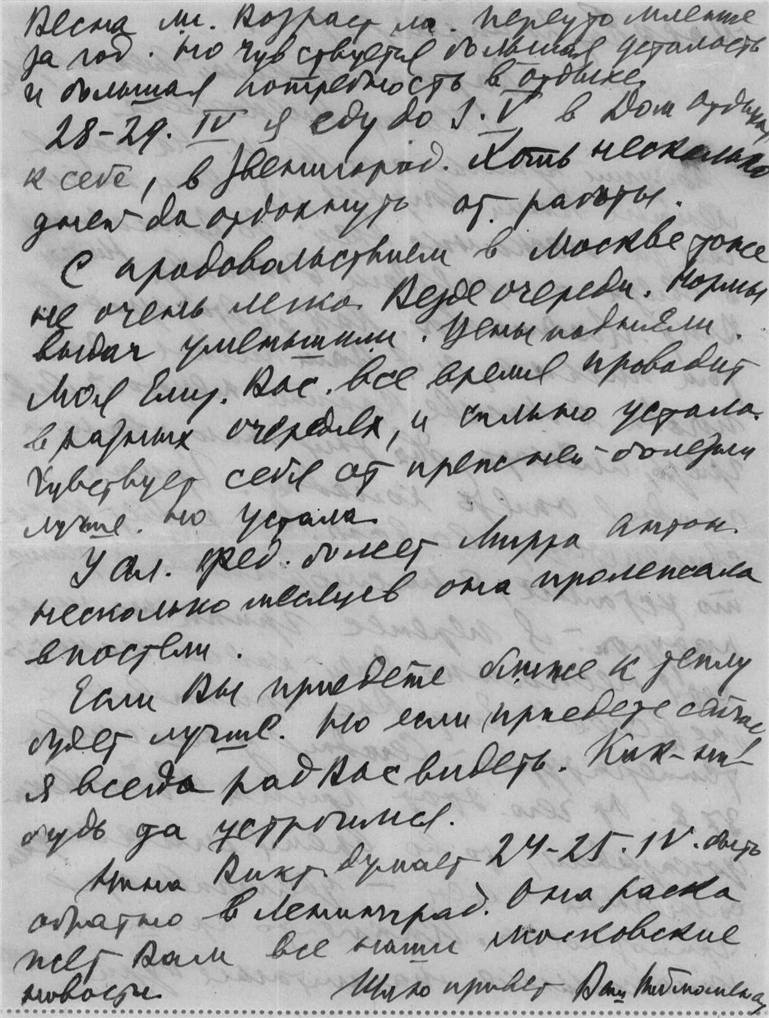 Весна ли. Возраст ли. Переутомление
за год. Но чувствуется большая усталость
и большая потребность в отдыхе.
28-29. IV я еду до 3. V в Дом отдыха,
к себе, в Звенигород. Хоть несколько
дней да отдохнуть от работы.
С продовольствием в Москве тоже
не очень легко. Везде очереди. Нормы
выдач уменьшили. Цены подняли.
Моя Елиз. Вас. все время проводит
в разных очередях, и сильно устала.
Чувствует себя от прежней болезни
лучше. Но устала.
У Ал. Фед. болеет Мирра Антон.
несколько месяцев она пролежала
в постели.
Если Вы приедете ближе к теплу
будет лучше. Но если приедете сейчас
я всегда рад Вас видеть. Как-ни-
будь да устроимся.
Нина Викт. думает 24-25. IV. быть
обратно в Ленинград. Она расска
жет Вам все наши московские
новости.
Шлю привет Ваш